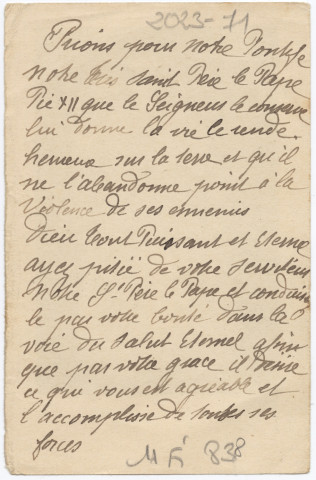 2023-71
Prions pour notre Pontife
notre très saint Père le Pape
Pie XII que le Seigneur le conserve
lui donne la vie le rende
heureux sur la terre et qu'il
ne l'abandonne point à la
violence de ses ennemis
Dieu tout Puissant et Eternel
ayez pitié de votre serviteur
notre St Père le Pape et conduisez
le par votre bonté dans la
voie du salut Eternel afin
que par votre grace il désire
ce qui vous est agréable et
l'accomplisse de toutes ses
forces
838